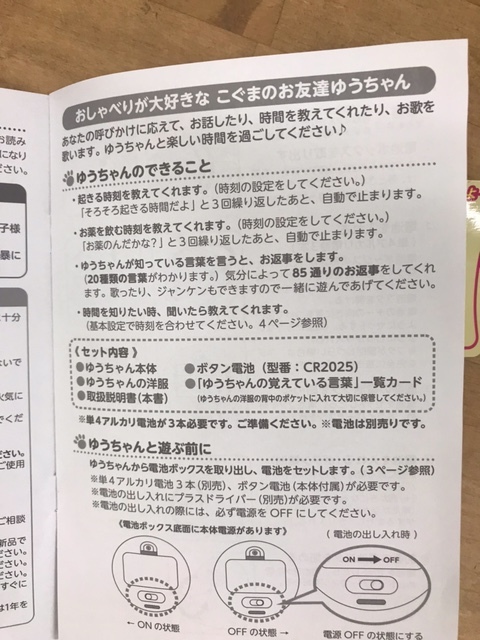 おしゃべりが大好きな こぐまのお友達ゆうちゃん
あなたの呼びかけに応えて、お話したり、時間を教えてくれたり、お歌を
歌います。ゆうちゃんと楽しい時間を過ごしてください♪
ゆうちゃんのできること
・起きる時刻を教えてくれます。（時刻の設定をしてください。）
「そろそろ起きる時間だよ」と３回繰り返したあと、自動で止まります。
・お薬を飲む時刻を教えてくれます。（時刻の設定をしてください。）
「お薬のんだかな？」と３回繰り返したあと、自動で止まります。
・ゆうちゃんが知っている言葉を言うと、お返事をします。
（20種類の言葉がわかります。）気分によって85通りのお返事をしてくれ
ます。歌ったり、ジャンケンもできますので一緒に遊んであげてください。
・時間を知りたい時、聞いたら教えてくれます。
（基本設定で時刻を合わせてください。４ページ参照）
《 セット内容 》
●ゆうちゃん本体 ●ボタン電池（型番：CR2025）
●ゆうちゃんの洋服 ●「ゆうちゃんの覚えている言葉」一覧カード
●取扱説明書(本書) （ゆうちゃんの洋服の背中のポケットに入れて大切に保管してください。）
※単４アルカリ電池が３本必要です。ご準備ください。※電池は別売りです。
ゆうちゃんと遊ぶ前に
ゆうちゃんから電池ボックスを取り出し、電池をセットします。（３ページ参照）
※単４アルカリ電池３本（別売）、ボタン電池（本体付属）が必要です。
※電池の出し入れにプラスドライバー（別売）が必要です。
※電池の出し入れの際には、必ず電源を OFF にしてください。
《電池ボックス底面に本体電源があります》
（ 電池の出し入れ時 ）
ON → OFF
← ON の状態
OFF の状態 →
電源 OFF の状態にする
お読み
になり
ださい。
子様
暴に
十分
ないで
火気に
でくだ
ださい。
ご使用
ご相談
新品で
ださい。
ださい。
ださい。
すぐに
は1年を